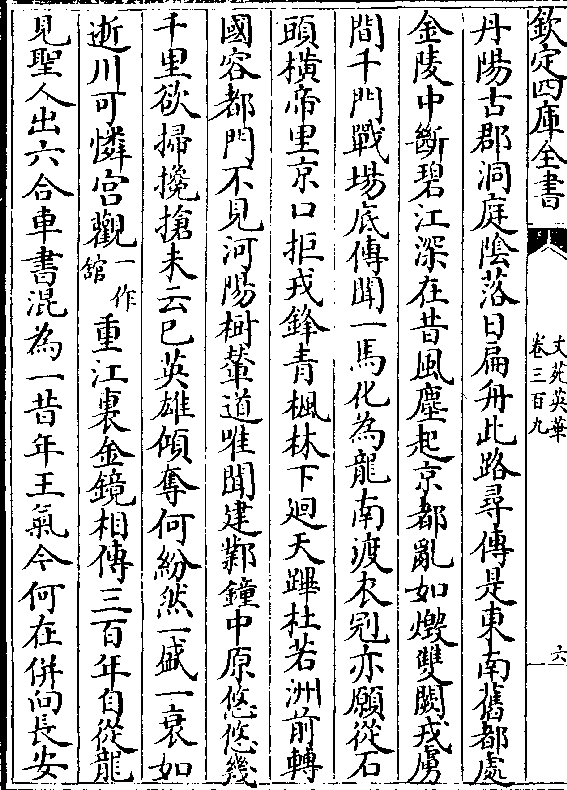 欽定四庫全書
文苑英華
卷三百九
六
丹陽古郡洞庭陰落日扁舟此路尋傳是東南舊都處
金陵中斷碧江深在昔風塵起京都亂如燬雙闕戎虜
間千門戰場底傳聞一馬化為龍南渡衣冠亦願從石
頭橫帝里京口拒戎鋒青楓林下廻天蹕杜若洲前轉
國容都門不見河陽樹輦道唯聞建鄴鐘中原悠悠幾
千里欲掃攙搶未云已英雄傾奪何紛然一盛一衰如
逝川可憐宮觀一作館重江裏金鏡相傳三百年自從龍
見聖人出六合車書混為一昔年王氣今何在併向長安